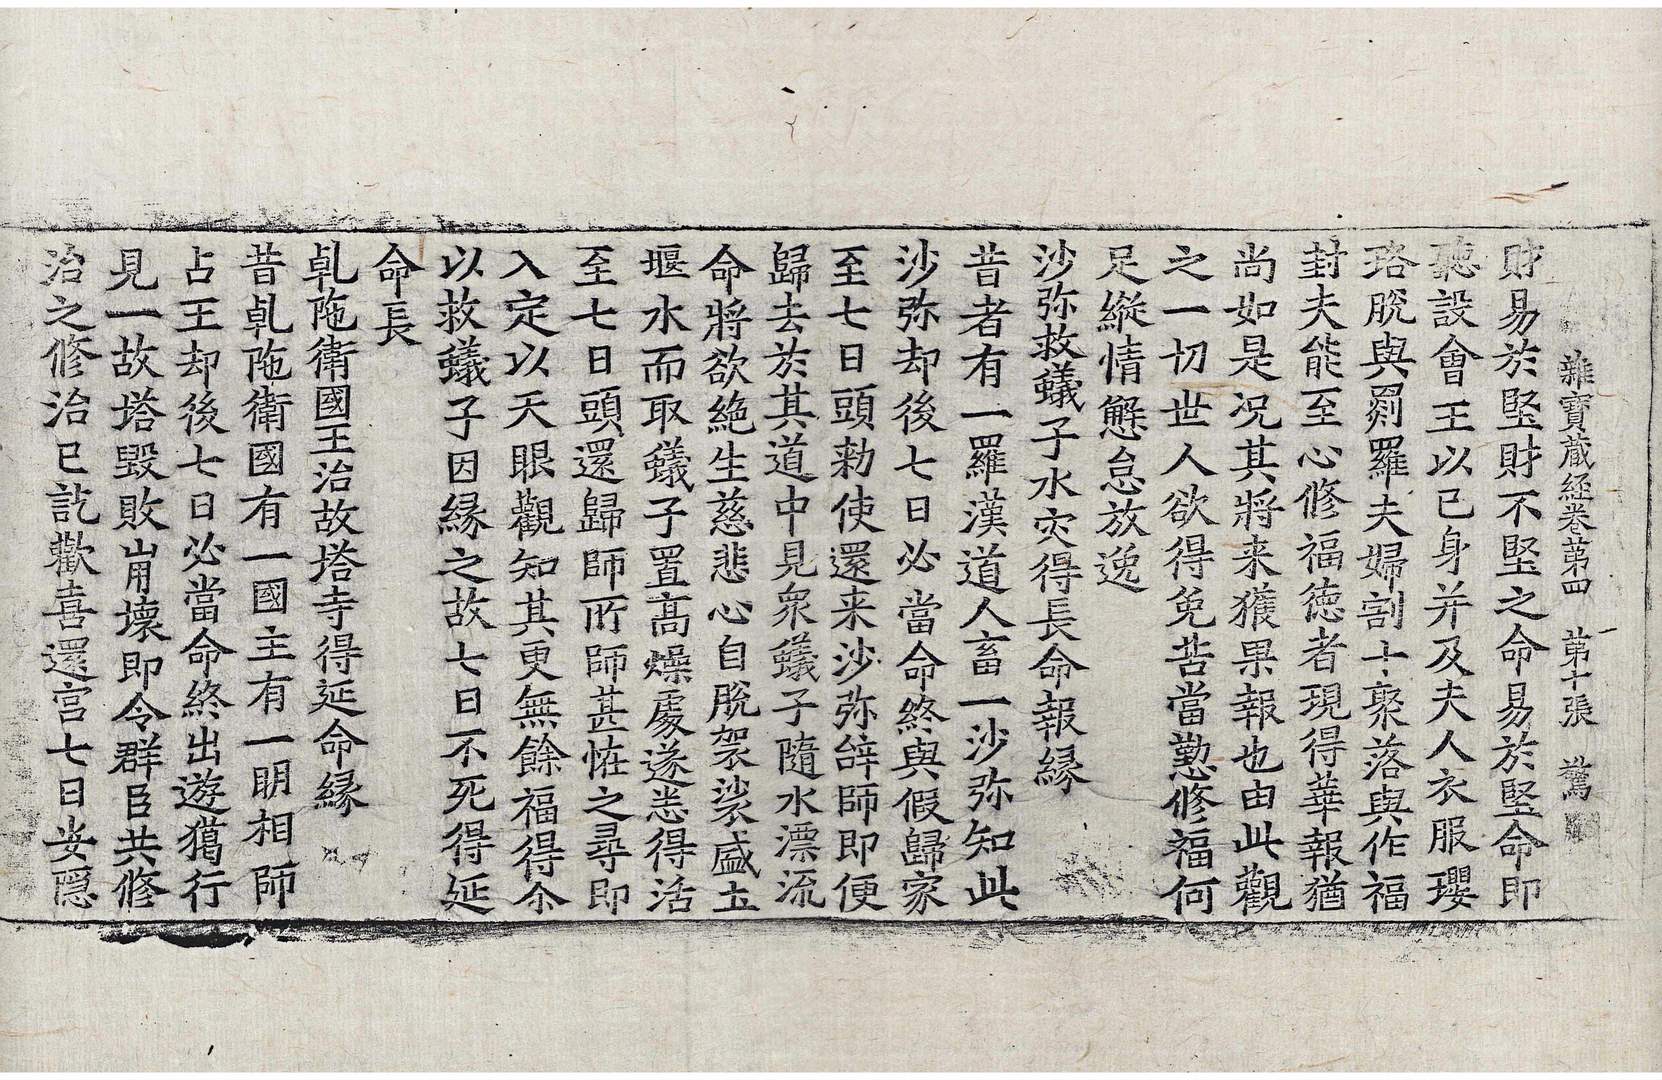 雜寶藏經卷第四 第十張 驚
財易於堅財不堅之命易於堅命即
聽設會王以己身并及夫人衣服瓔
珞脫與罽羅夫婦割十聚落與作福
封夫能至心修福德者現得華報猶
尚如是況其將來獲果報也由此觀
之一切世人欲得免苦當勤修福何
足縱情懈怠放逸
沙弥救蟻子水灾得長命報緣
昔者有一羅漢道人畜一沙弥知此
沙弥却後七日必當命終與假歸家
至七日頭勑使還来沙弥辞師即便
歸去於其道中見衆蟻子隨水漂流
命將欲絶生慈悲心自脫袈裟盛土
堰水而取蟻子置高燥處遂悉得活
至七日頭還歸師所師甚恠之尋即
入定以天眼觀知其更無餘福得尒
以救蟻子因緣之故七日不死得延
命長
乹陁衛國王治故塔寺得延命緣
昔乹陁衛國有一國主有一明相師
占王却後七日必當命終出遊獦行
見一故塔毀敗崩壞即令群臣共修
治之修治已訖歡喜還宮七日安隱